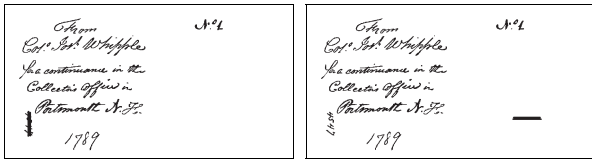 From
Colo. Josh. Whipple
for a continuance in the
Collector's office in
Portsmouth N. H.
1789
No. 1
From
Colo. Josh. Whipple
for a continuance in the
Collector's office in
Portsmouth N. H.
1789
No. 1